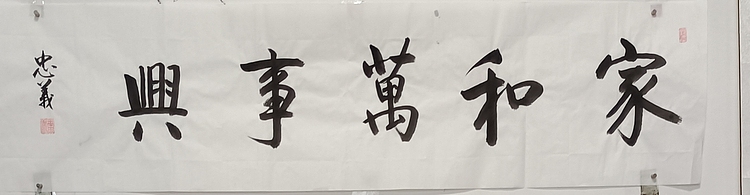 家和萬事興
忠義